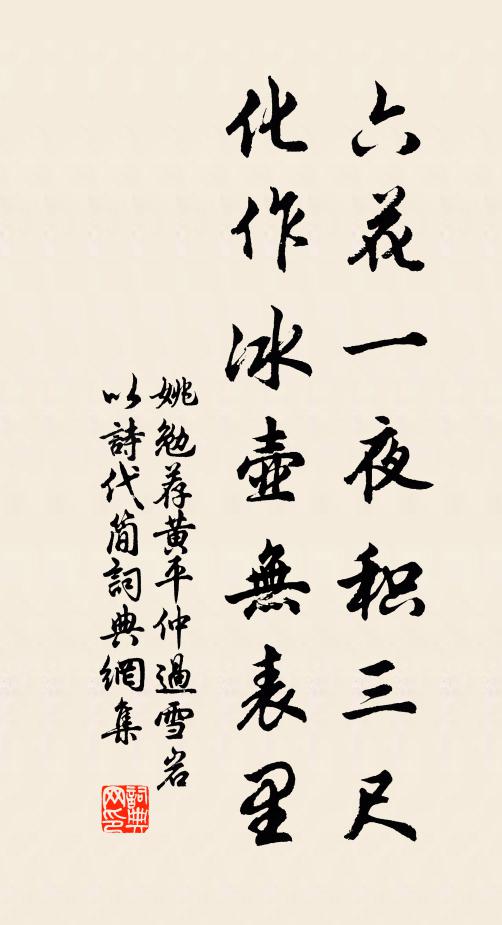 六花一夜积三尺
化作冰壺無表里
姚勉荐黄平仲過雪岩
以詩代简詞典網集
詞典网印